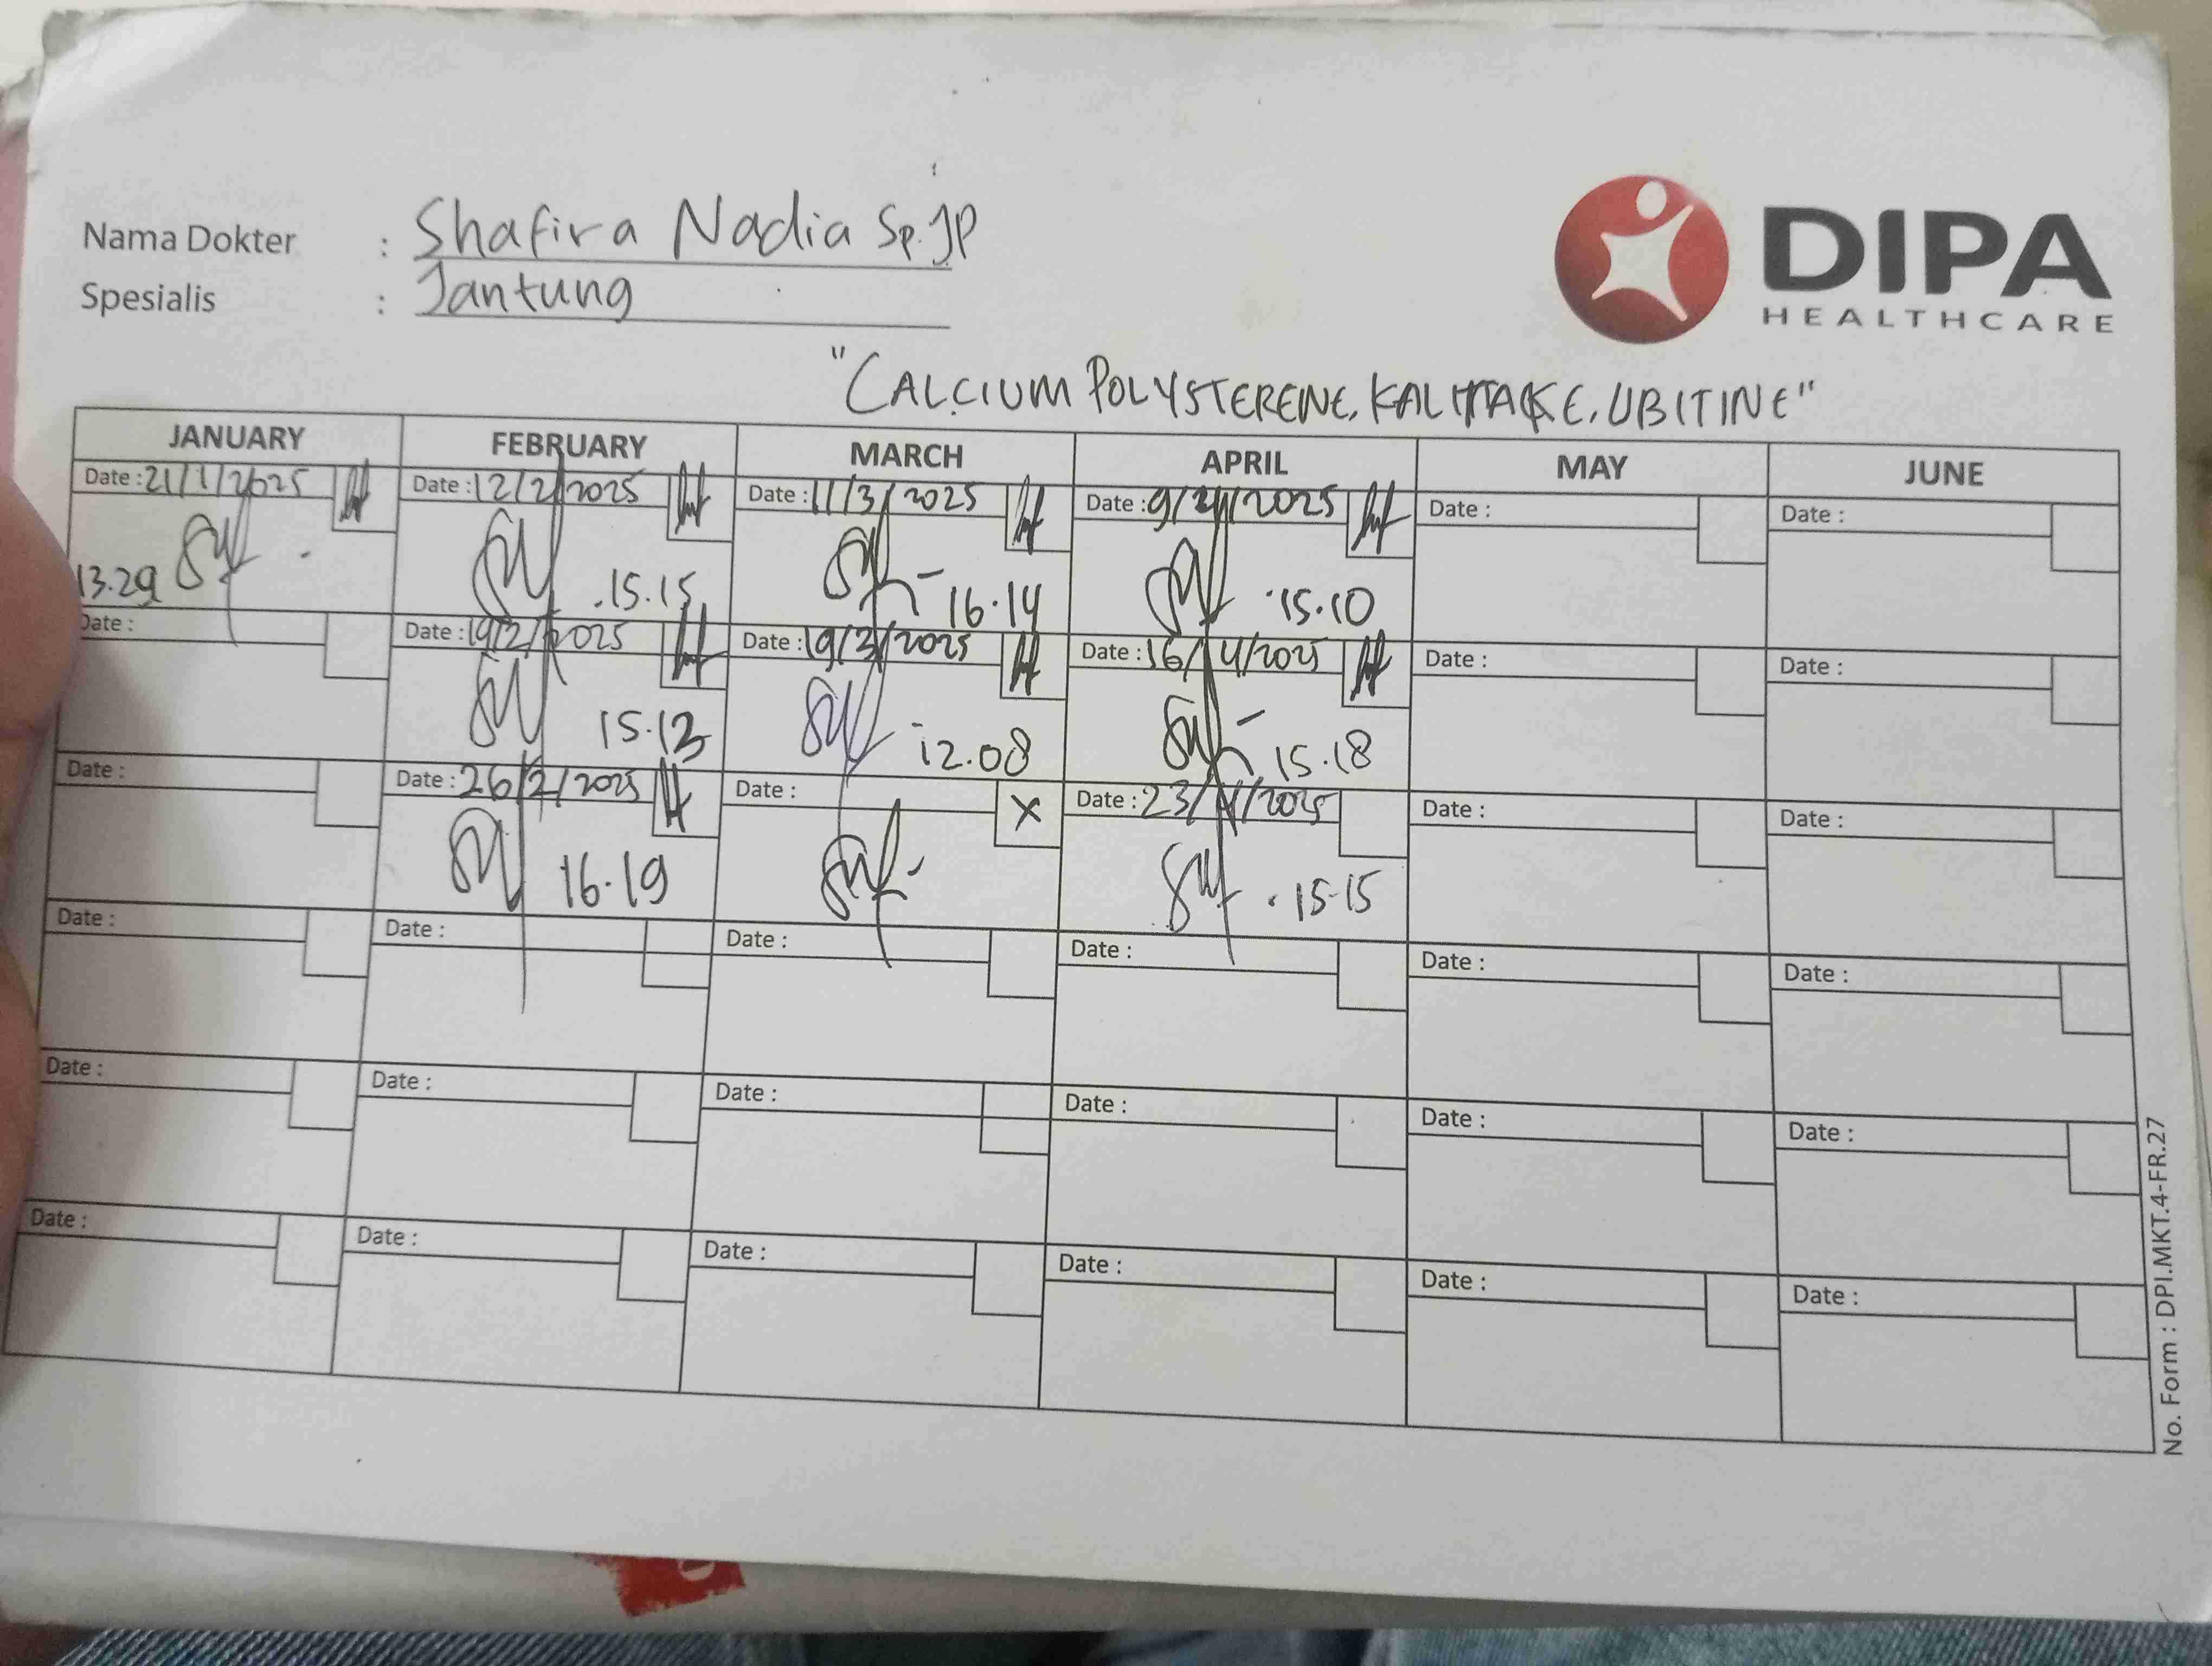 Nama Dokter : Shafira Nadia Sp.JP
Spesialis : Jantung
DIPA
HEALTHCARE
"CALCIUM POLYSTEREINE, KALITAKE, UBITINE"
JANUARY FEBRUARY MARCH APRIL MAY JUNE
Date : 21/1/2025 Date : 12/2/2025 Date : 11/3/2025 Date : 9/4/2025 Date : Date :
13.29 15.15 16.14 15.10
Date : Date : 19/2/2025 Date : 19/3/2025 Date : 16/4/2025 Date : Date :
15.13 12.08 15.18
Date : Date : 26/2/2025 Date : X Date : 23/4/2025 Date : Date :
16.19 15.15
Date : Date : Date : Date : Date : Date :
Date : Date : Date : Date : Date : Date :
Date : Date : Date : Date : Date : Date :
No. Form : DPI.MKT.4-FR.27